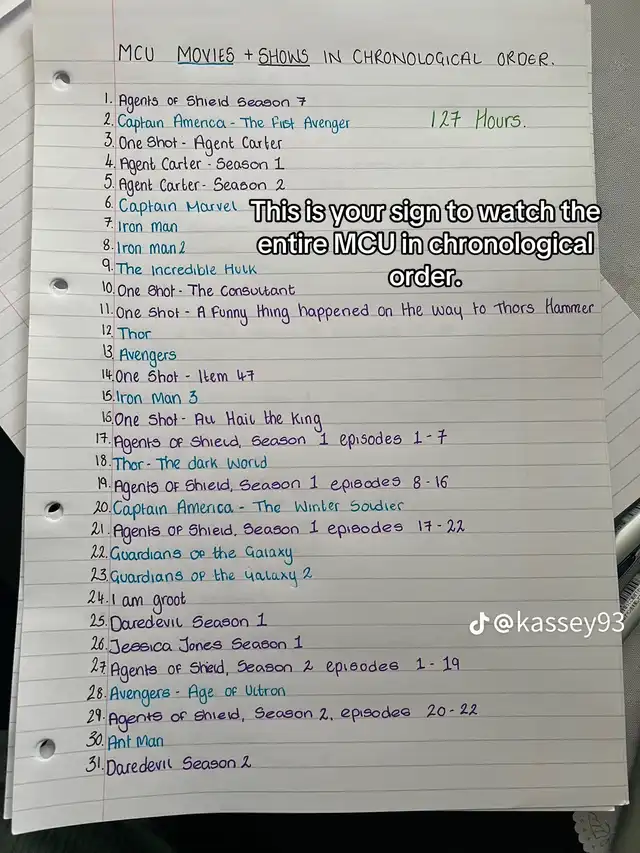 MCU MOVIES + SHOWS IN CHRONOLOGICAL ORDER.
1. Agents of Shield Season 7
2. Captain America - The Fist Avenger
127 Hours.
3. One Shot - Agent Carter
4. Agent Carter - Season 1
5. Agent Carter - Season 2
6. Captain Marvel
7. Iron man
8. Iron man 2
9. The Incredible Hulk
10. One Shot - The Consultant
11. One Shot - A funny thing happened on the way to Thors Hammer
12. Thor
13. Avengers
14. One Shot - Item 47
15. Iron Man 3
16. One Shot - All Hail the King
17. Agents of Shield, Season 1 episodes 1-7
18. Thor - The dark World
19. Agents Of Shield, Season 1 episodes 8-16
20. Captain America - The Winter Soldier
21. Agents of Shield, Season 1 episodes 17-22
22. Guardians of the Galaxy
23. Guardians of the Galaxy 2
24. I am groot
25. Daredevil Season 1
26. Jessica Jones Season 1
27. Agents of Shield, Season 2 episodes 1-19
28. Avengers - Age of Ultron
29. Agents of Shield, Season 2, episodes 20-22
30. Ant Man
31. Daredevil Season 2
This is your sign to watch the
entire MCU in chronological
order.
@kassey93